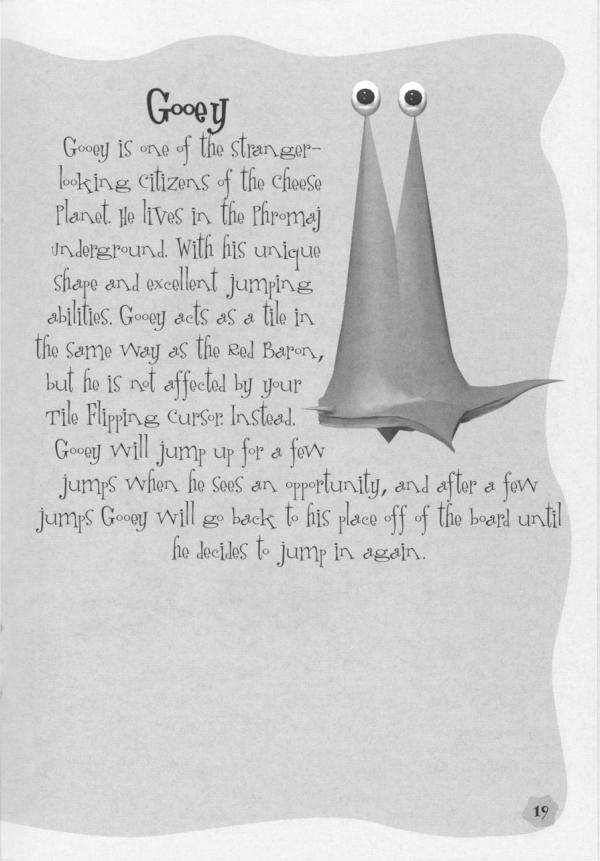 Gooey
Gooey is one of the stranger-
looking citizens of the Cheese
Planet. He lives in the Phromaj
Underground. With his unique
shape and excellent jumping
abilities. Gooey acts as a tile in
the same way as the Red Baron,
but he is not affected by your
Tile Flipping Cursor. Instead.
Gooey will jump up for a few
jumps when he sees an opportunity, and after a few
jumps Gooey will go back to his place off of the board until
he decides to jump in again.
19